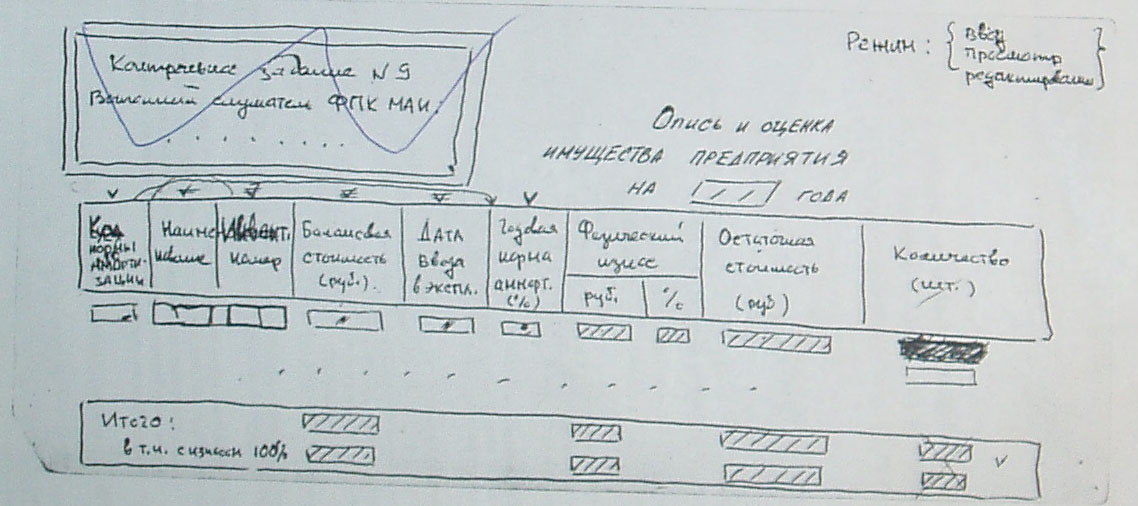 Контрольное задание N 9
Выполнил слушатель ФПК МАИ:
Режим: { Ввод
Просмотр
редактирование }
Опись и оценка
имущества предприятия
на / / года
Код нормы амортизации
Наименование
Инвент. номер
Балансовая стоимость (руб.).
Дата ввода в экспл.
Годовая норма аморт. (%)
Физический износ
руб. %
Остаточная стоимость (руб)
Количество (шт.)
Итого:
в т.ч. с износом 100%